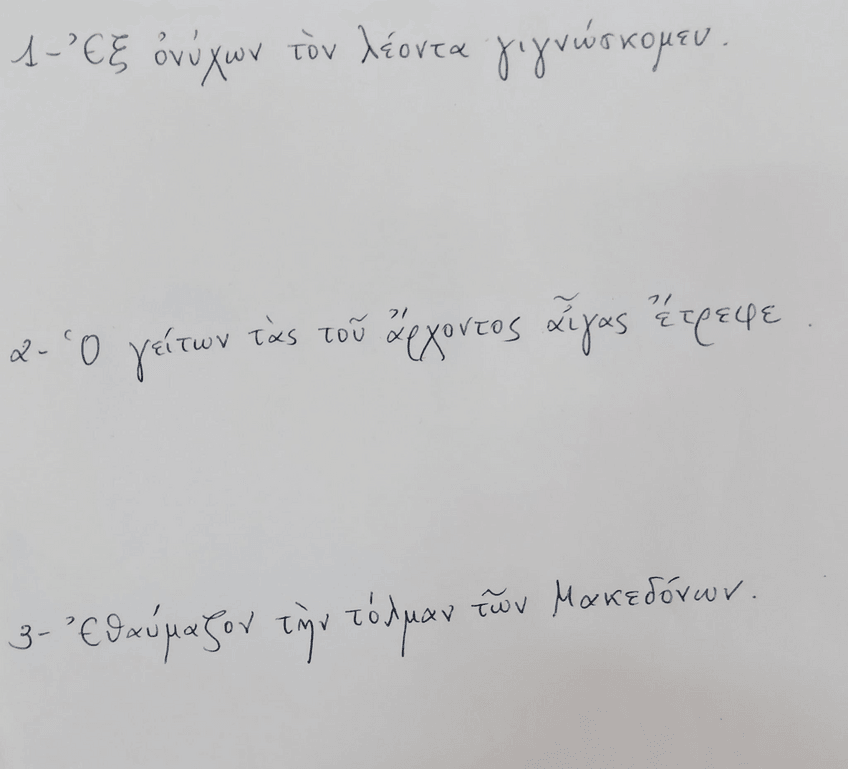 1- Ἐξ ὀνύχων τὸν λέοντα γιγνώσκομεν.
2- Ὁ γείτων τὰς τοῦ ἄρχοντος αἶγας ἔτρεφε.
3- Ἐθαύμαζον τὴν τόλμαν τῶν Μακεδόνων.